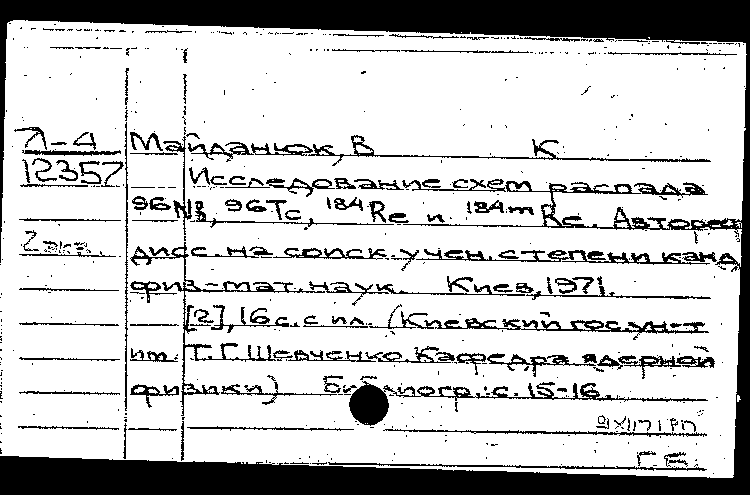 Л-4 Майданюк, В К
12357 Исследование схем распада
96Nb, 96Tc, 184Re и 184mRe. Автореф
2 экз. дисс. на соиск. учен. степени канд
физ-мат. наук. Киев, 1971.
[2], 16 с. с ил. (Киевский гос. ун-т
им. Т.Г. Шевченко. Кафедра ядерной
физики) Библиогр.: с. 15-16.
Г. Б.